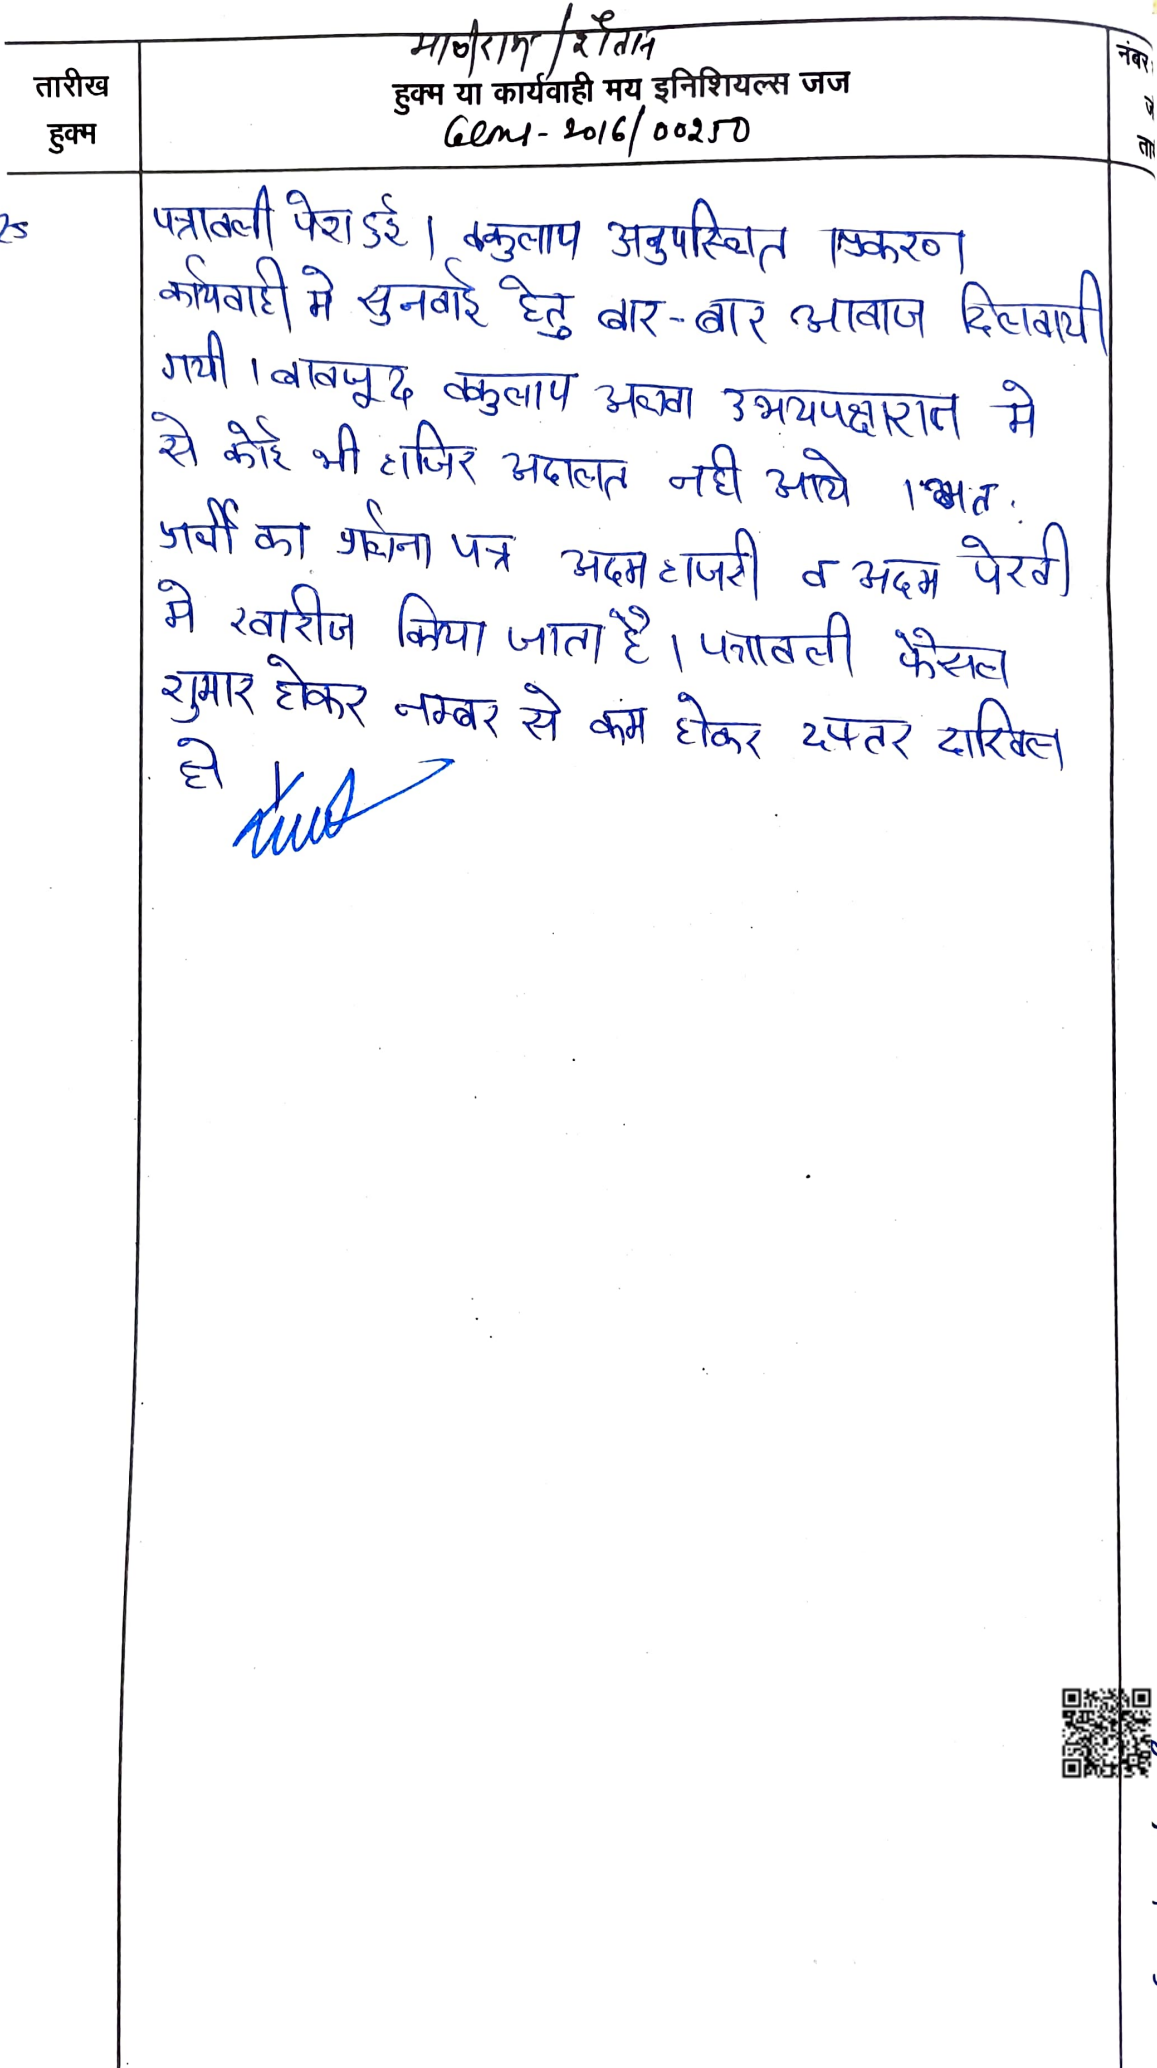 माणाराम / शैतान
तारीख
हुक्म
हुक्म या कार्यवाही मय इनिशियल्स जज
Gcms - 2016/00250
नंबर
25
पत्रावली पेश हुई । वकुलाय अनुपस्थित । प्रकरण
कार्यवाही मे सुनवाई हेतु बार-बार आवाज दिलवायी
गयी । बावजूद वकुलाय अथवा उभयपक्षारान मे
से कोई भी हाजिर अदालत नही आये । अत:
प्रार्थी का प्रार्थना पत्र अदम हाजरी व अदम पेरवी
मे खारीज किया जाता है । पत्रावली फैसल
शुमार होकर नम्बर से कम होकर दफ्तर दाखिल
हो